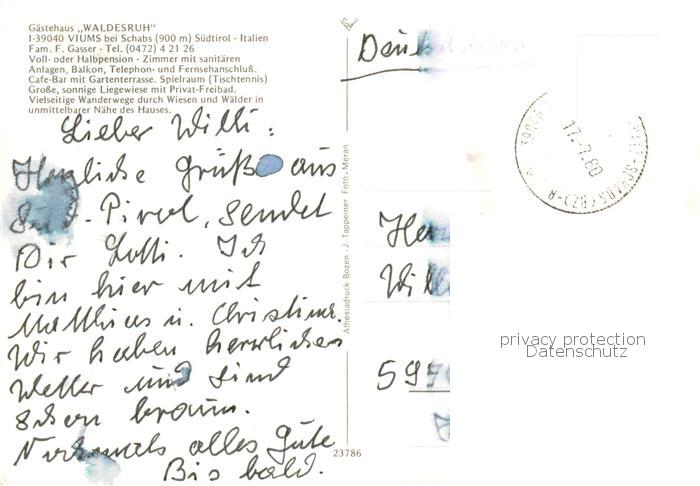 Gästehaus „WALDESRUH"
I-39040 VIUMS bei Schabs (900 m) Südtirol - Italien
Fam. F. Gasser - Tel. (0472) 4 21 26
Voll- oder Halbpension - Zimmer mit sanitären
Anlagen, Balkon, Telephon- und Fernsehanschluß.
Cafe-Bar mit Gartenterrasse. Spielraum (Tischtennis)
Große, sonnige Liegewiese mit Privat-Freibad.
Vielseitige Wanderwege durch Wiesen und Wälder in
unmittelbarer Nähe des Hauses.
Lieber Willi:
Herzliche Grüße aus
Süd-Tirol, sendet
Dir Lotti. Ich
bin hier mit
Matthias u. Christine.
Wir haben herrliches
Wetter und sind
schon braun.
Nochmals alles Gute
Bis bald.
23786
Athesiadruck Bozen - J. Tappeiner Foto - Meran
17.-7.80
Willi
privacy protection
Datenschutz